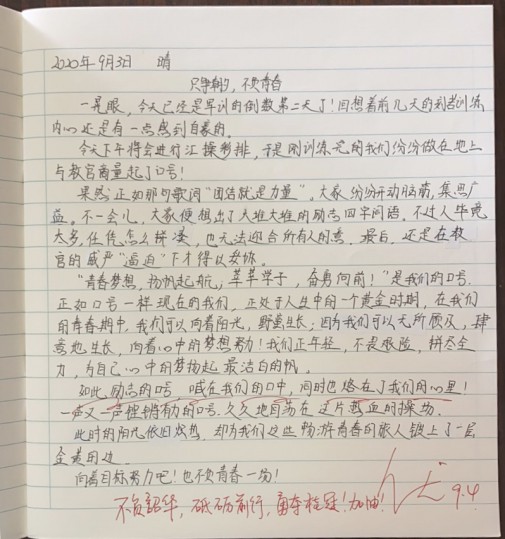 2020年9月3日 晴
只争朝夕，不负青春
一晃眼，今天已经是军训的倒数第二天了！回想着前几天的刻苦训练
内心还是有一点感到自豪的。
今天下午将会进行汇操彩排，于是刚训练完的我们纷纷做在地上
与教官商量起了口号！
果然，正如那句歌词“团结就是力量”。大家纷纷开动脑筋，集思广
益。不一会儿，大家便想出了大堆大堆的励志四字词语。不过人毕竟
太多，任凭怎么拼凑，也无法迎合所有人的意。最后，还是在教
官的威严“逼迫”下才得以安休。
“青春梦想，扬帆起航，莘莘学子，奋勇向前！”是我们的口号.
正如口号一样，现在的我们，正处于人生中的一个黄金时期，在我们
的青春期中，我们可以向着阳光，野蛮生长；因为我们可以无所顾及，肆
意地生长，向着心中的梦想努力！我们正年轻，不畏艰险，拼尽全
力，为自己心中的梦扬起最洁白的帆。
如此励志的口号，喊在我们的口中，同时也烙在了我们的心里！
一声又一声铿锵有力的口号，久久地回荡在这片热血的操场.
此时的阳光依旧炽热，却为我们这些畅游青春的旅人镀上了一层
金黄的边.
向着目标努力吧！也不负青春一场！
不负韶华，砥砺前行，勇夺桂冠！加油！
9.4